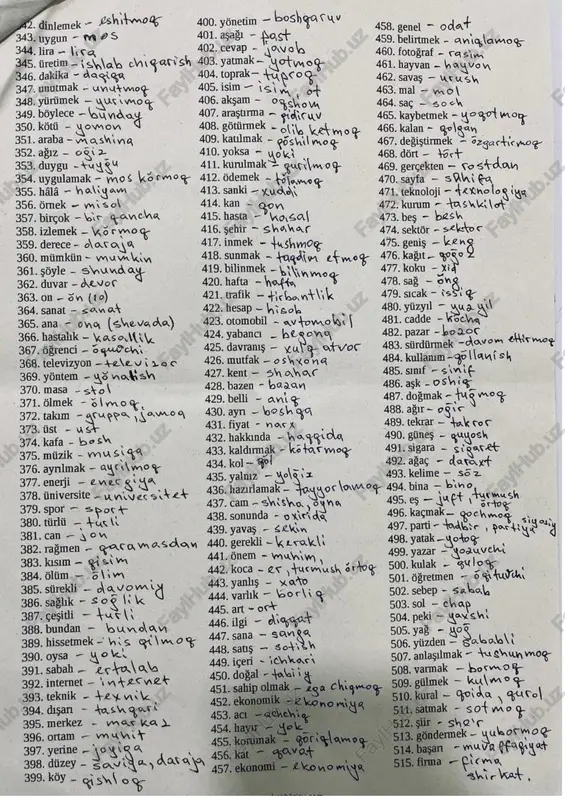 342. dinlemek – eshitmoq
343. uygun – mos
344. lira – lira
345. üretim – ishlab chiqarish
346. dakika – daqiqa
347. unutmak – unutmoq
348. yürümek – yurimoq
349. böylece – bunday
350. kötü – yomon
351. araba – mashina
352. ağız – og'iz
353. duygu – tuyğu
354. uygulamak – mos körmoq
355. hâlâ – haliyam
356. örnek – misol
357. birçok – bir qancha
358. izlemek – körmoq
359. derece – daraja
360. mümkün – mumkin
361. şöyle – shunday
362. duvar – devor
363. on – ön (10)
364. sanat – sanat
365. ana – ona (shevada)
366. hastalık – kasallik
367. öğrenci – öquvchi
368. televizyon – televizor
369. yöntem – yönalish
370. masa – stol
371. ölmek – ölmoq
372. takım – gruppa, jamoa
373. üst – ust
374. kafa – bosh
375. müzik – musiqa
376. ayrılmak – ayrilmoq
377. enerji – energiya
378. üniversite – universitet
379. spor – sport
380. türlü – turli
381. can – jon
382. rağmen – qaramasdan
383. kısım – qisim
384. ölüm – ölim
385. sürekli – davomiy
386. sağlık – soğlik
387. çeşitli – turli
388. bundan – bundan
389. hissetmek – his qilmoq
390. oysa – yoki
391. sabah – ertalab
392. internet – internet
393. teknik – texnik
394. dışarı – tashqari
395. merkez – markaz
396. ortam – muhit
397. yerine – joyiga
398. düzey – saviya, daraja
399. köy – qishloq
400. yönetim – boshqaruv
401. aşağı – past
402. cevap – javob
403. yatmak – yotmoq
404. toprak – tuproq
405. isim – isim, ot
406. akşam – oqshom
407. araştırma – qidiruv
408. götürmek – olib ketmoq
409. katılmak – qöshilmoq
410. yoksa – yoki
411. kurulmak – qurilmoq
412. ödemek – tölamoq
413. sanki – xuddi
414. kan – qon
415. hasta – kasal
416. şehir – shahar
417. inmek – tushmoq
418. sunmak – taqdim etmoq
419. bilinmek – bilinmoq
420. hafta – hafta
421. trafik – tirbantlik
422. hesap – hisob
423. otomobil – avtomobil
424. yabancı – begona
425. davranış – xulq atvor
426. mutfak – oshxona
427. kent – shahar
428. bazen – bazan
429. belli – aniq
430. ayrı – boshqa
431. fiyat – narx
432. hakkında – haqqida
433. kaldırmak – kötarmoq
434. kol – qöl
435. yalnız – yolğiz
436. hazırlamak – tayyorlamoq
437. cam – shisha, oyna
438. sonunda – oxirida
439. yavaş – sekin
440. gerekli – kerakli
441. önem – muhim,
442. koca – er, turmush örtoq
443. yanlış – xato
444. varlık – borliq
445. art – ort
446. ilgi – diqqat
447. sana – sanga
448. satış – sotish
449. içeri – ichkari
450. doğal – tabiiy
451. sahip olmak – ega chiqmoq
452. ekonomik – ekonomiya
453. acı – achchiq
454. hayır – yok
455. korumak – qöriqlamoq
456. kat – qavat
457. ekonomi – ekonomiya
458. genel – odat
459. belirtmek – aniqlamoq
460. fotoğraf – rasim
461. hayvan – hayvon
462. savaş – urush
463. mal – mol
464. saç – soch
465. kaybetmek – yoqotmoq
466. kalan – qolgan
467. değiştirmek – özgartirmoq
468. dört – tört
469. gerçekten – rostdan
470. sayfa – sahifa
471. teknoloji – texnologiya
472. kurum – tashkilot
473. beş – besh
474. sektör – sektor
475. geniş – keng
476. kağıt – qoğoz
477. koku – xid
478. sağ – öng
479. sıcak – issiq
480. yüzyıl – yuz yil
481. cadde – köcha
482. pazar – bozor
483. sürdürmek – davom ettirmoq
484. kullanım – qöllanish
485. sınıf – sinif
486. aşk – oshiq
487. doğmak – tuğmoq
488. ağır – oğir
489. tekrar – takror
490. güneş – quyosh
491. sigara – sigaret
492. ağaç – daraxt
493. kelime – söz
494. bina – bino,
495. eş – juft, turmush örtoq
496. kaçmak – qochmoq
497. parti – tadbir, partiya siyosiy
498. yatak – yotoq
499. yazar – yozuvchi
500. kulak – quloq
501. öğretmen – öqituvchi
502. sebep – sabab
503. sol – chap
504. peki – yaxshi
505. yağ – yoğ
506. yüzden – sababli
507. anlaşılmak – tushunmoq
508. varmak – bormoq
509. gülmek – kulmoq
510. kural – qoida, qurol
511. satmak – sotmoq
512. şiir – she'r
513. göndermek – yubormoq
514. başarı – muvaffaqiyat
515. firma – firma
shirkat.
FaylHub.uz